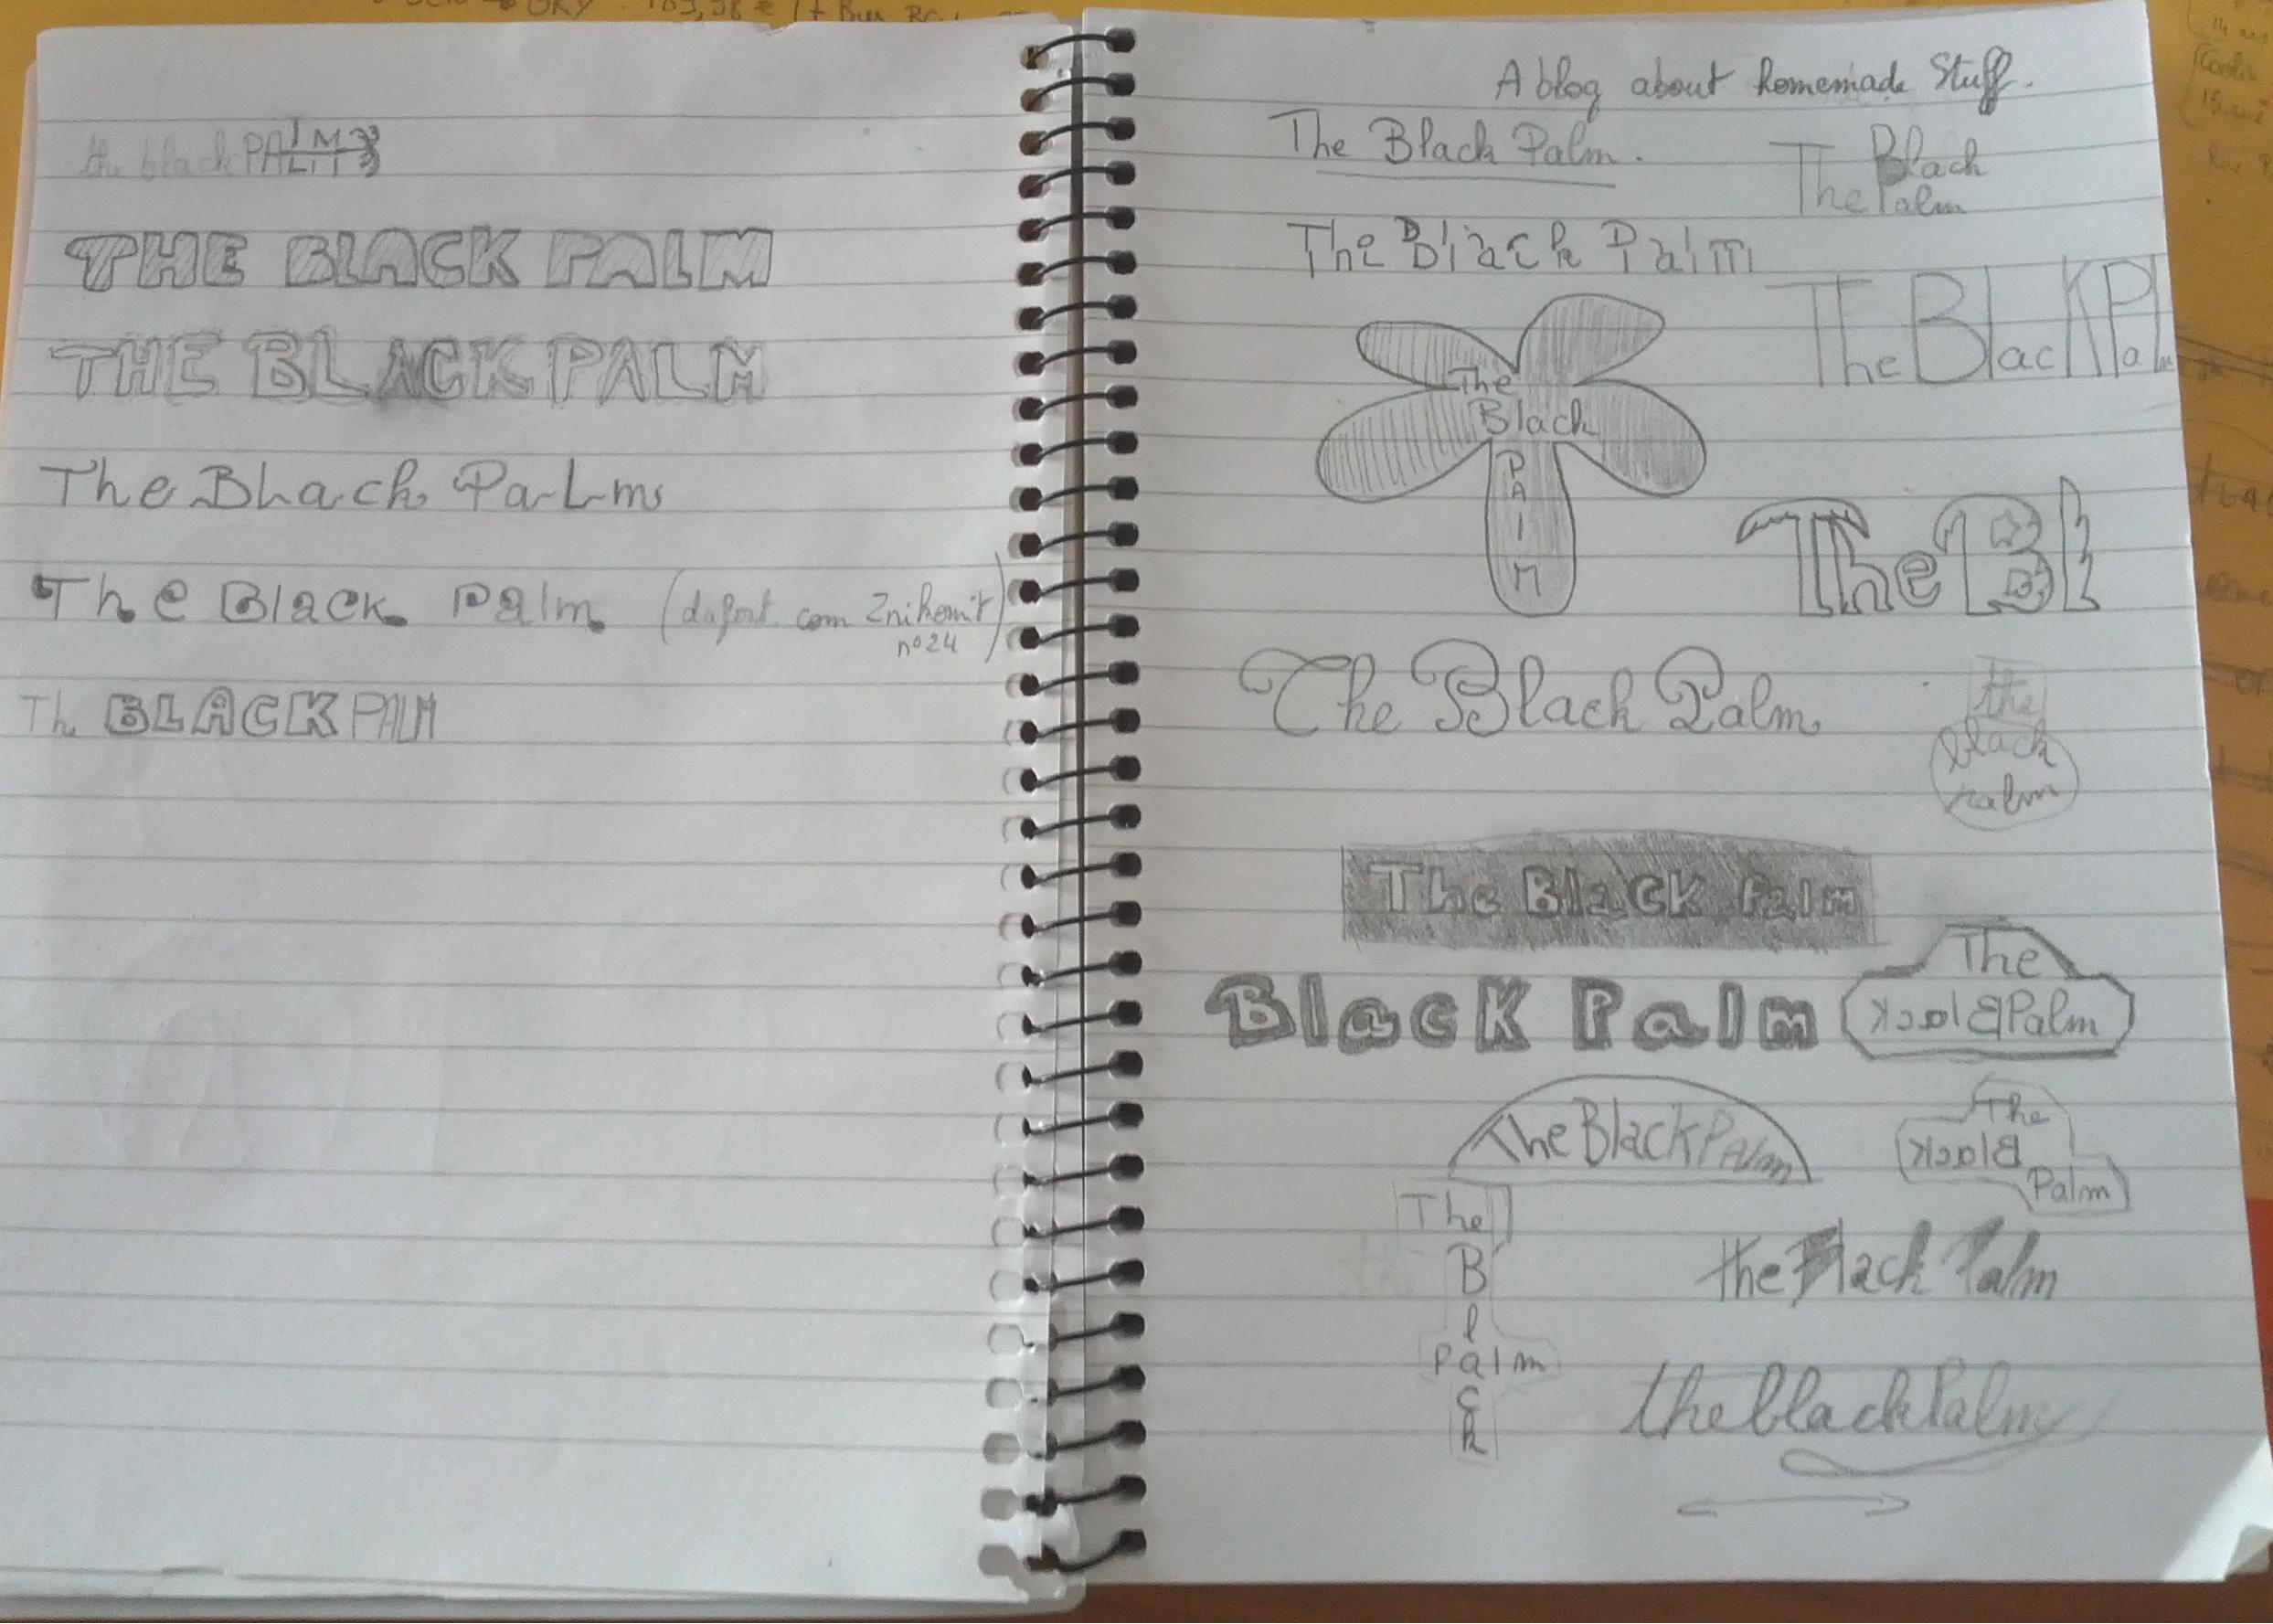 the black PALM
THE BLACK PALM
THE BLACK PALM
The Black Palms
The Black Palm (dafont.com Znikomit
n°24)
Th BLACK PALM
A blog about homemade Stuff.
The Black Palm.
The Black
Palm
The Black Palm
The Black Palm
The
Black
PAlM
The Bl
The Black Palm
the
black
palm
The Black Palm
Black Palm
The
Black Palm
The Black Palm
The
Black
Palm
The
B
l
Palm
c
k
the Black Palm
theblackPalm